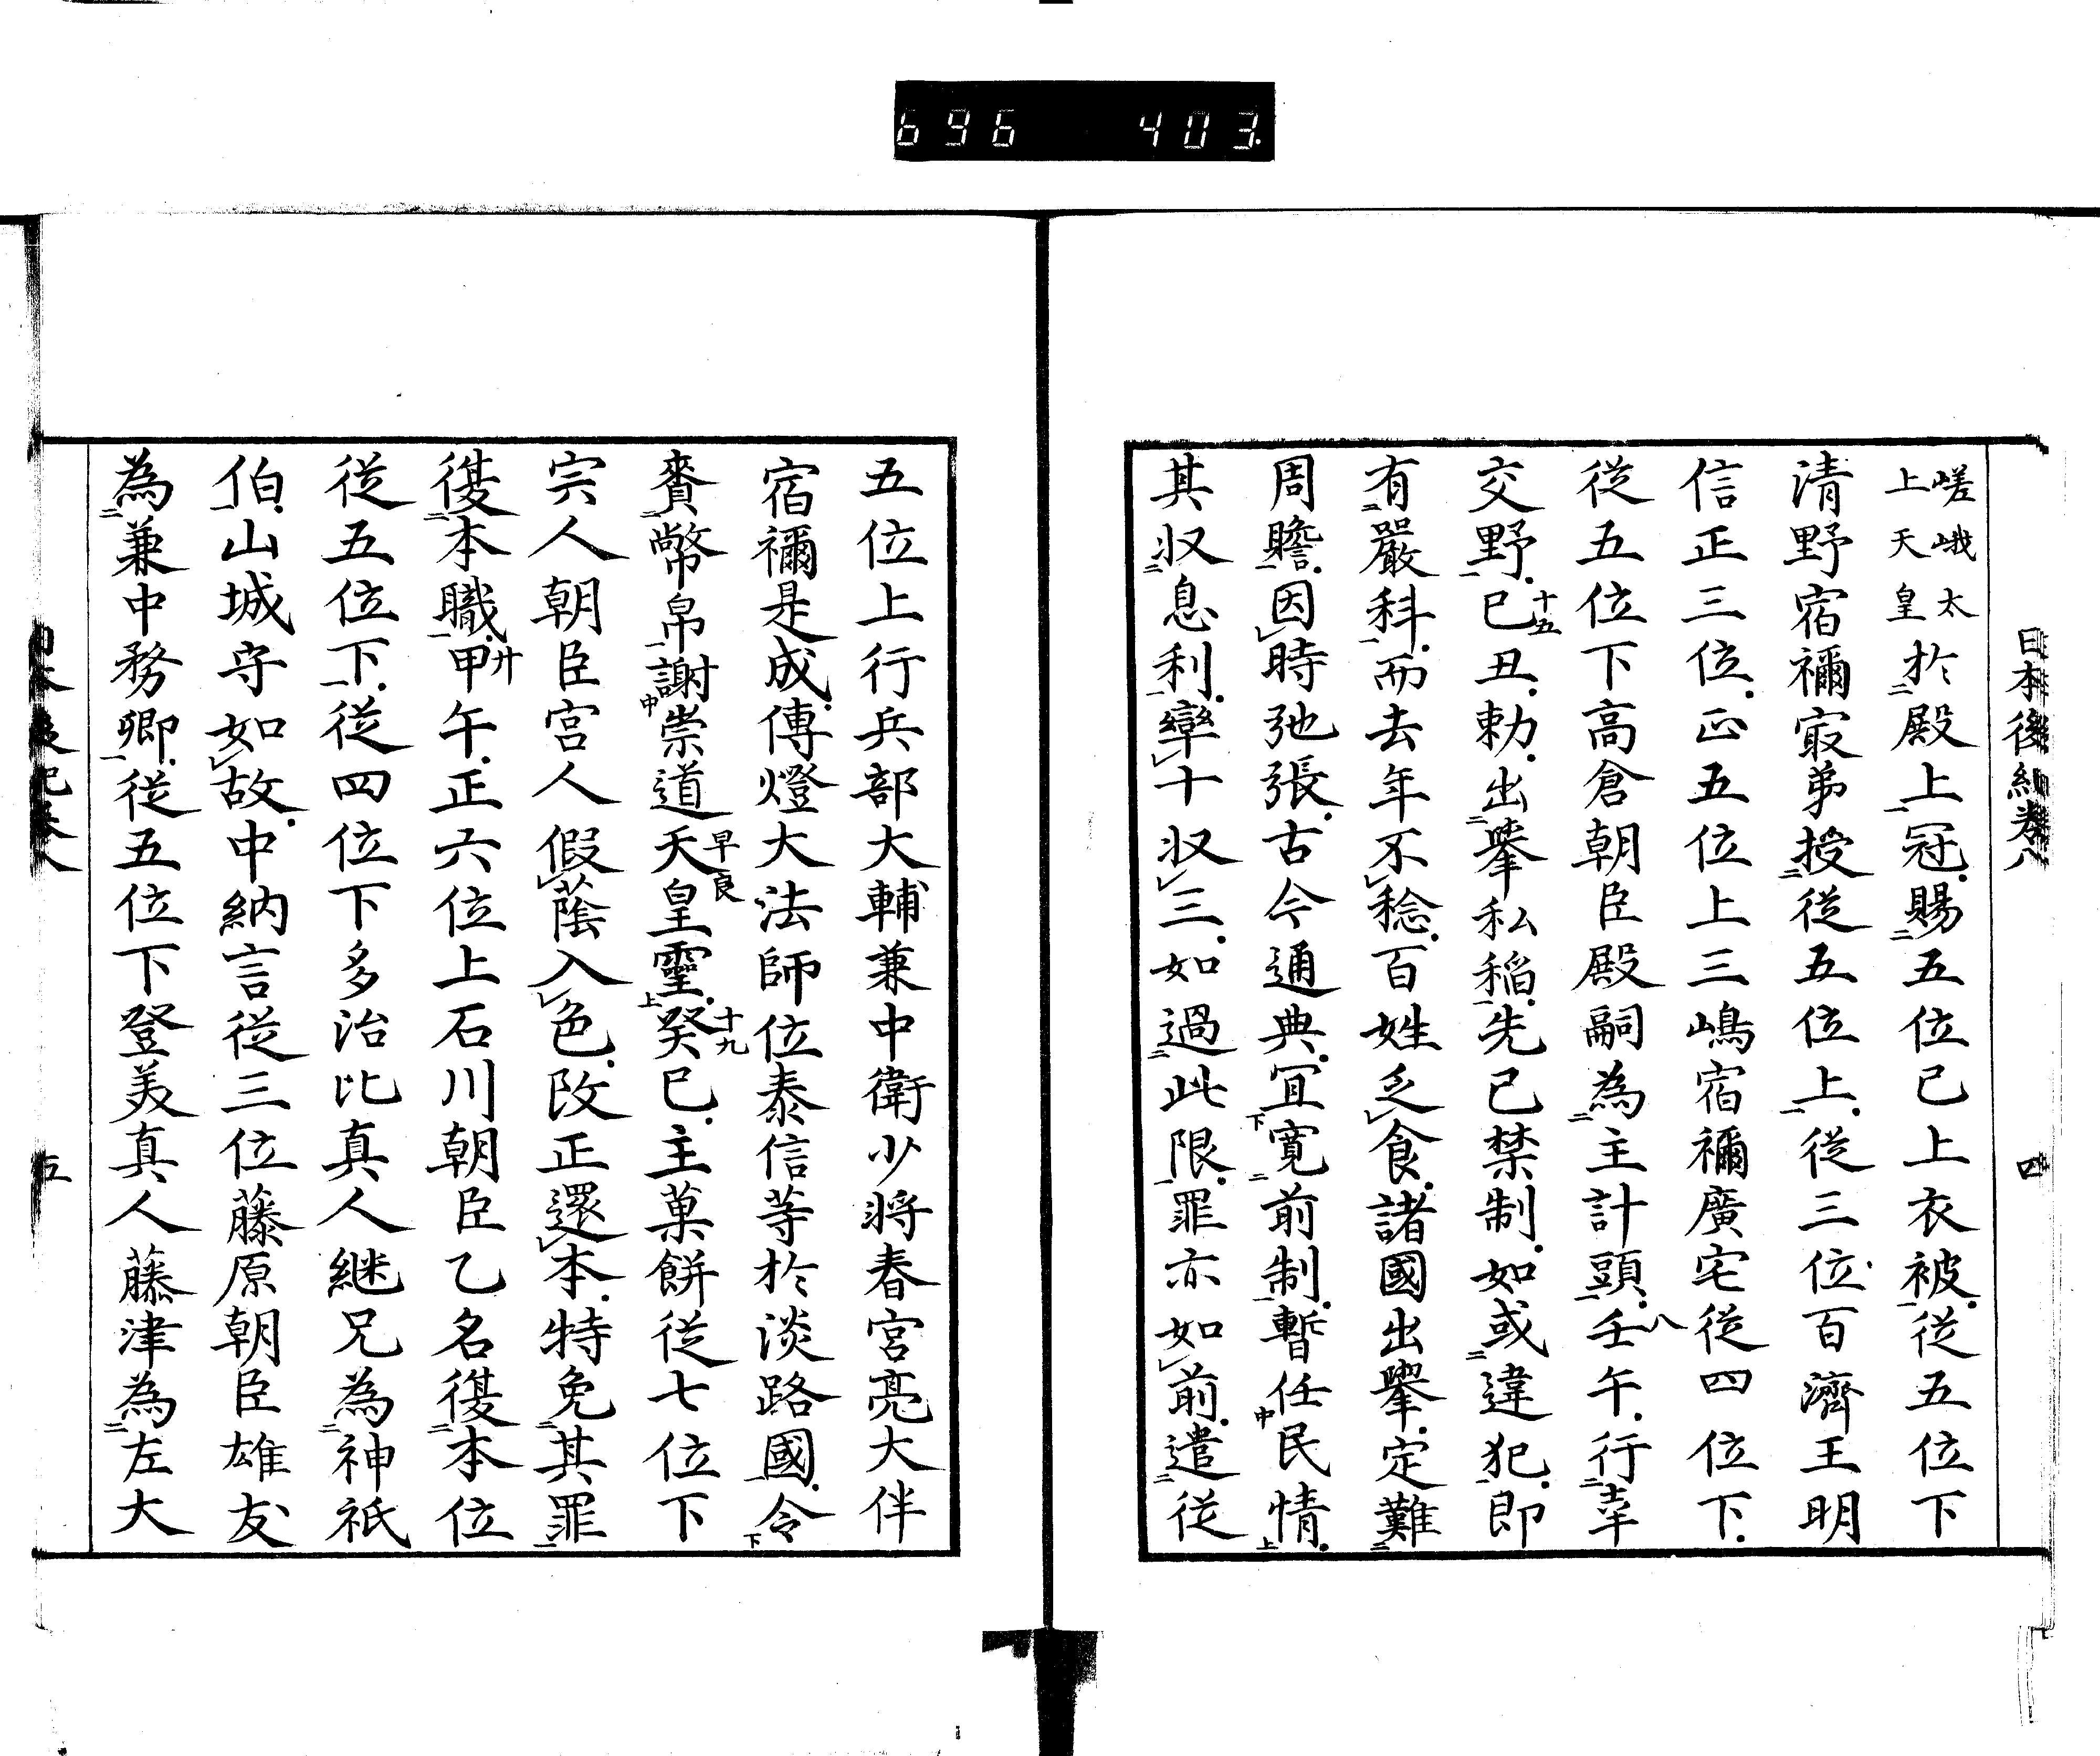 696 403
日本後紀卷八 四
嵯峨太上天皇於殿上冠賜五位已上衣被從五位下
清野宿禰㝡弟授從五位上從三位百濟王明
信正三位正五位上三嶋宿禰廣宅從四位下
從五位下高倉朝臣殿嗣為主計頭八壬午行幸
交野十五己丑勅出擧私稲先已禁制如或違犯即
有嚴科而去年不稔百姓乏食諸國出擧定難
周贍因時弛張古今通典冝寛前制暫任民情
其収息利率十収三如過此限罪亦如前遣從
五位上行兵部大輔兼中衛少将春宮亮大伴
宿禰是成傳燈大法師位泰信等於淡路國令
賷幣帛謝崇道天皇早良靈十九癸巳主菓餅從七位下
宍人朝臣宮人假蔭入色改正還本特免其罪
復本職廿甲午正六位上石川朝臣乙名復本位
從五位下從四位下多治比真人継兄為神祇
伯山城守如故中納言從三位藤原朝臣雄友
為兼中務卿從五位下登美真人藤津為左大
日本後紀卷八 五